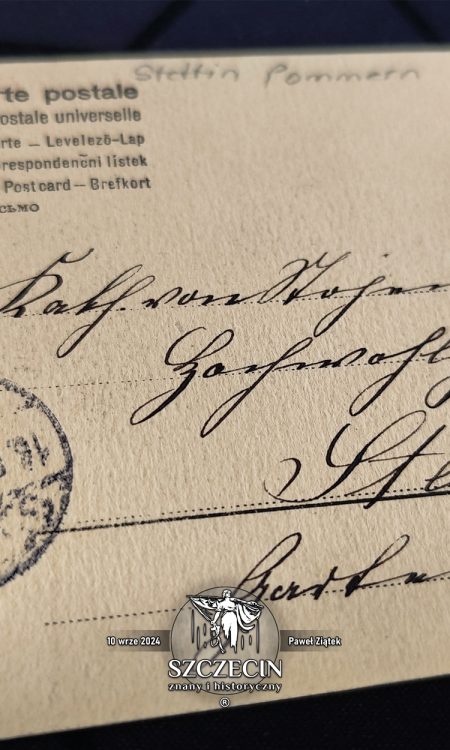 Stettin Pommern
rte postale
ostale universelle
rte – Levelező-Lap
respondenční listek
Postcard – Brefkort
сьмо
Kath. von
Hochwohlg
Ste
10 wrze 2024
Paweł Ziątek
SZCZECIN
znany i historyczny
®